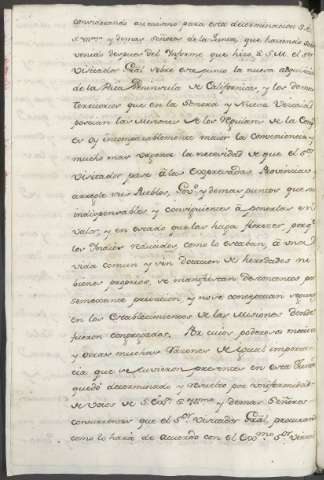 conviniendo unanimes para esta determinacion S.E.
S. Yllma. y demas Señores de la Junta, que haviendo sobre
venido despues del Informe que hizo à S.M. el Sor.
Visitador Gral sobre este punto la nueva adquisicion
de la Alta Peninsula de Californias, y los demas
territorios que en la Sonora y Nueva Vizcaya
poseían las Misiones de los Regulares de la Compa
es oy incomparablemente maior la conveniencia, y
mucho mas urgente la necesidad de que el Sor.
Visitador pase à las expresadas Provincias
arregle sus Pueblos, Govno. y demas puntos que son
indispensables y consiguientes à ponerlas en
valor, y en estado que las haga florecer, porqe.
los Indios reducidos como lo estaban, à una
vida comun y sin dotacion de heredades ni
bienes proprios, se manifiestan descontentos por
semejante privacion, y no se conceptuan seguros
en los Establecimientos de las Misiones donde
fueron congregados. Por cuios poderosos motivos
y otras muchas razones de igual importan
cia que se tuvieron presentes en esta Junta
quedó determinado y resuelto por uniformidad
de votos de S. Exa. S. Yllma. y demas Señores
concurrentes que el Sor. Visitador Gral, procurando
como lo hará de acuerdo con el Exmo. Sor. Virrey